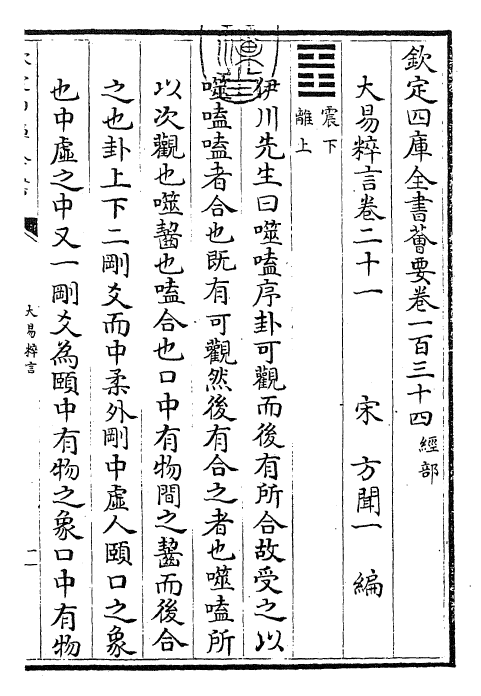 欽定四庫全書薈要卷一百三十四 經部
大易粹言卷二十一 宋 方聞一 編
震下
離上
伊川先生曰噬嗑序卦可觀而後有所合故受之以
噬嗑嗑者合也既有可觀然後有合之者也噬嗑所
以次觀也噬齧也嗑合也口中有物間之齧而後合
之也卦上下二剛爻而中柔外剛中虛人頤口之象
也中虛之中又一剛爻為頤中有物之象口中有物
大易粹言